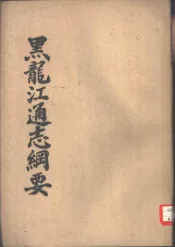 黑龍江通志綱要